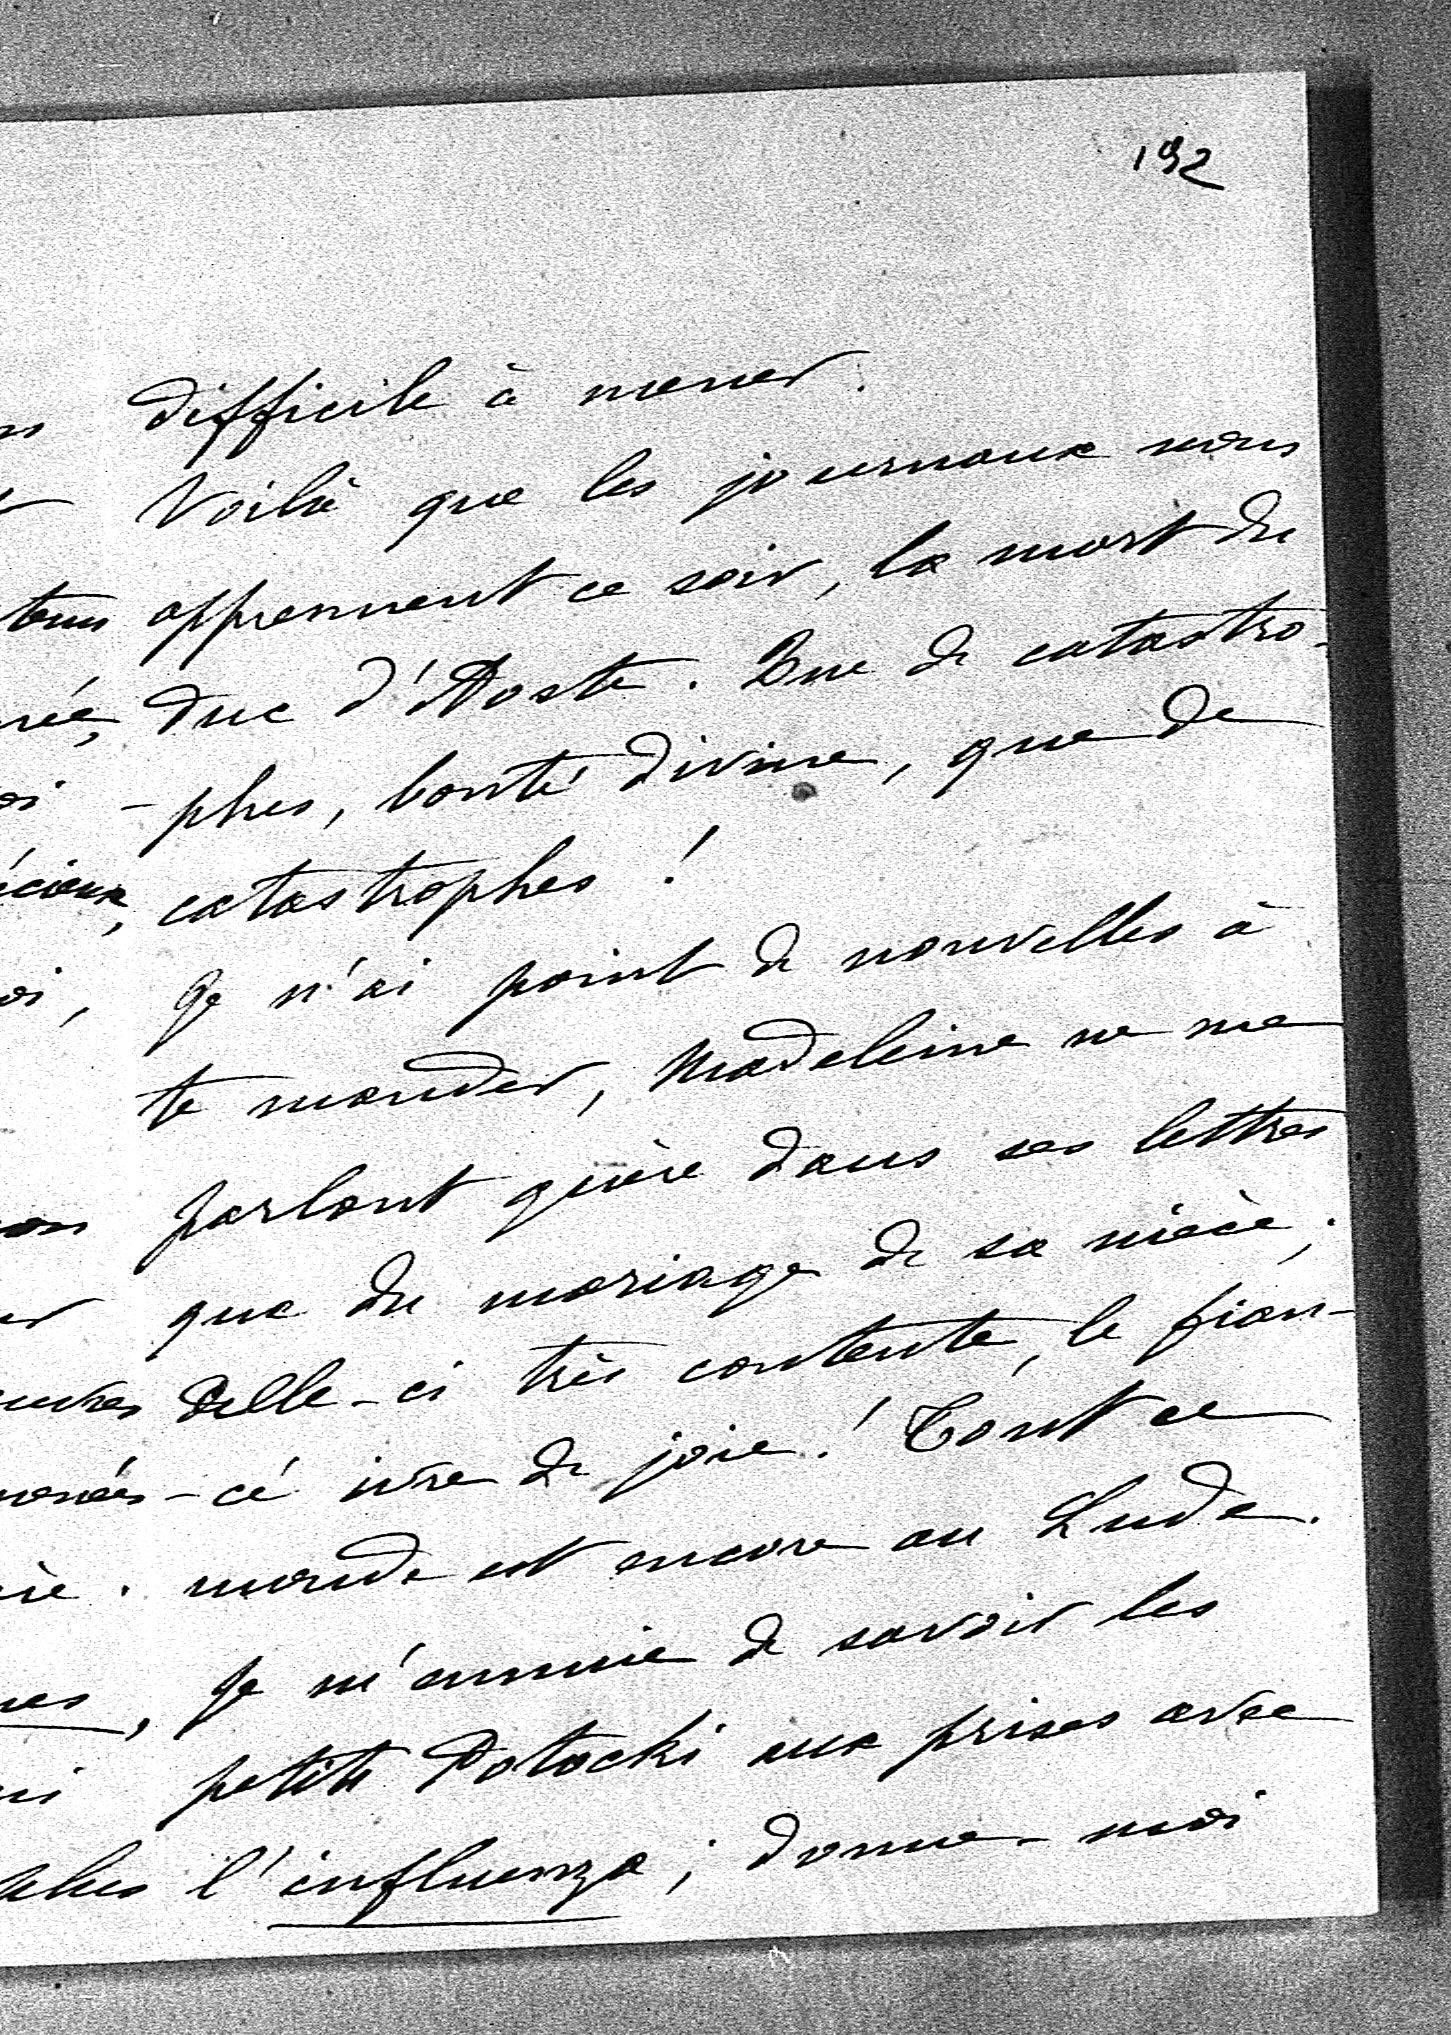 192
difficile à mener.
Voilà que les journaux nous
apprennent ce soir, la mort du
duc d'Aoste. Que de catastro-
-phes, bonté divine, que de
catastrophes !
Je n'ai point de nouvelles à
te mander, Madeleine ne me
parlant guère dans ses lettres
que du mariage de sa nièce ;
Celle-ci très contente, le fian-
-cé ivre de joie ! Tout ce
monde est encore au Lude.
Je m'ennuie de savoir les
petite Potocki aux prises avec
l'influenza ; donne-moi